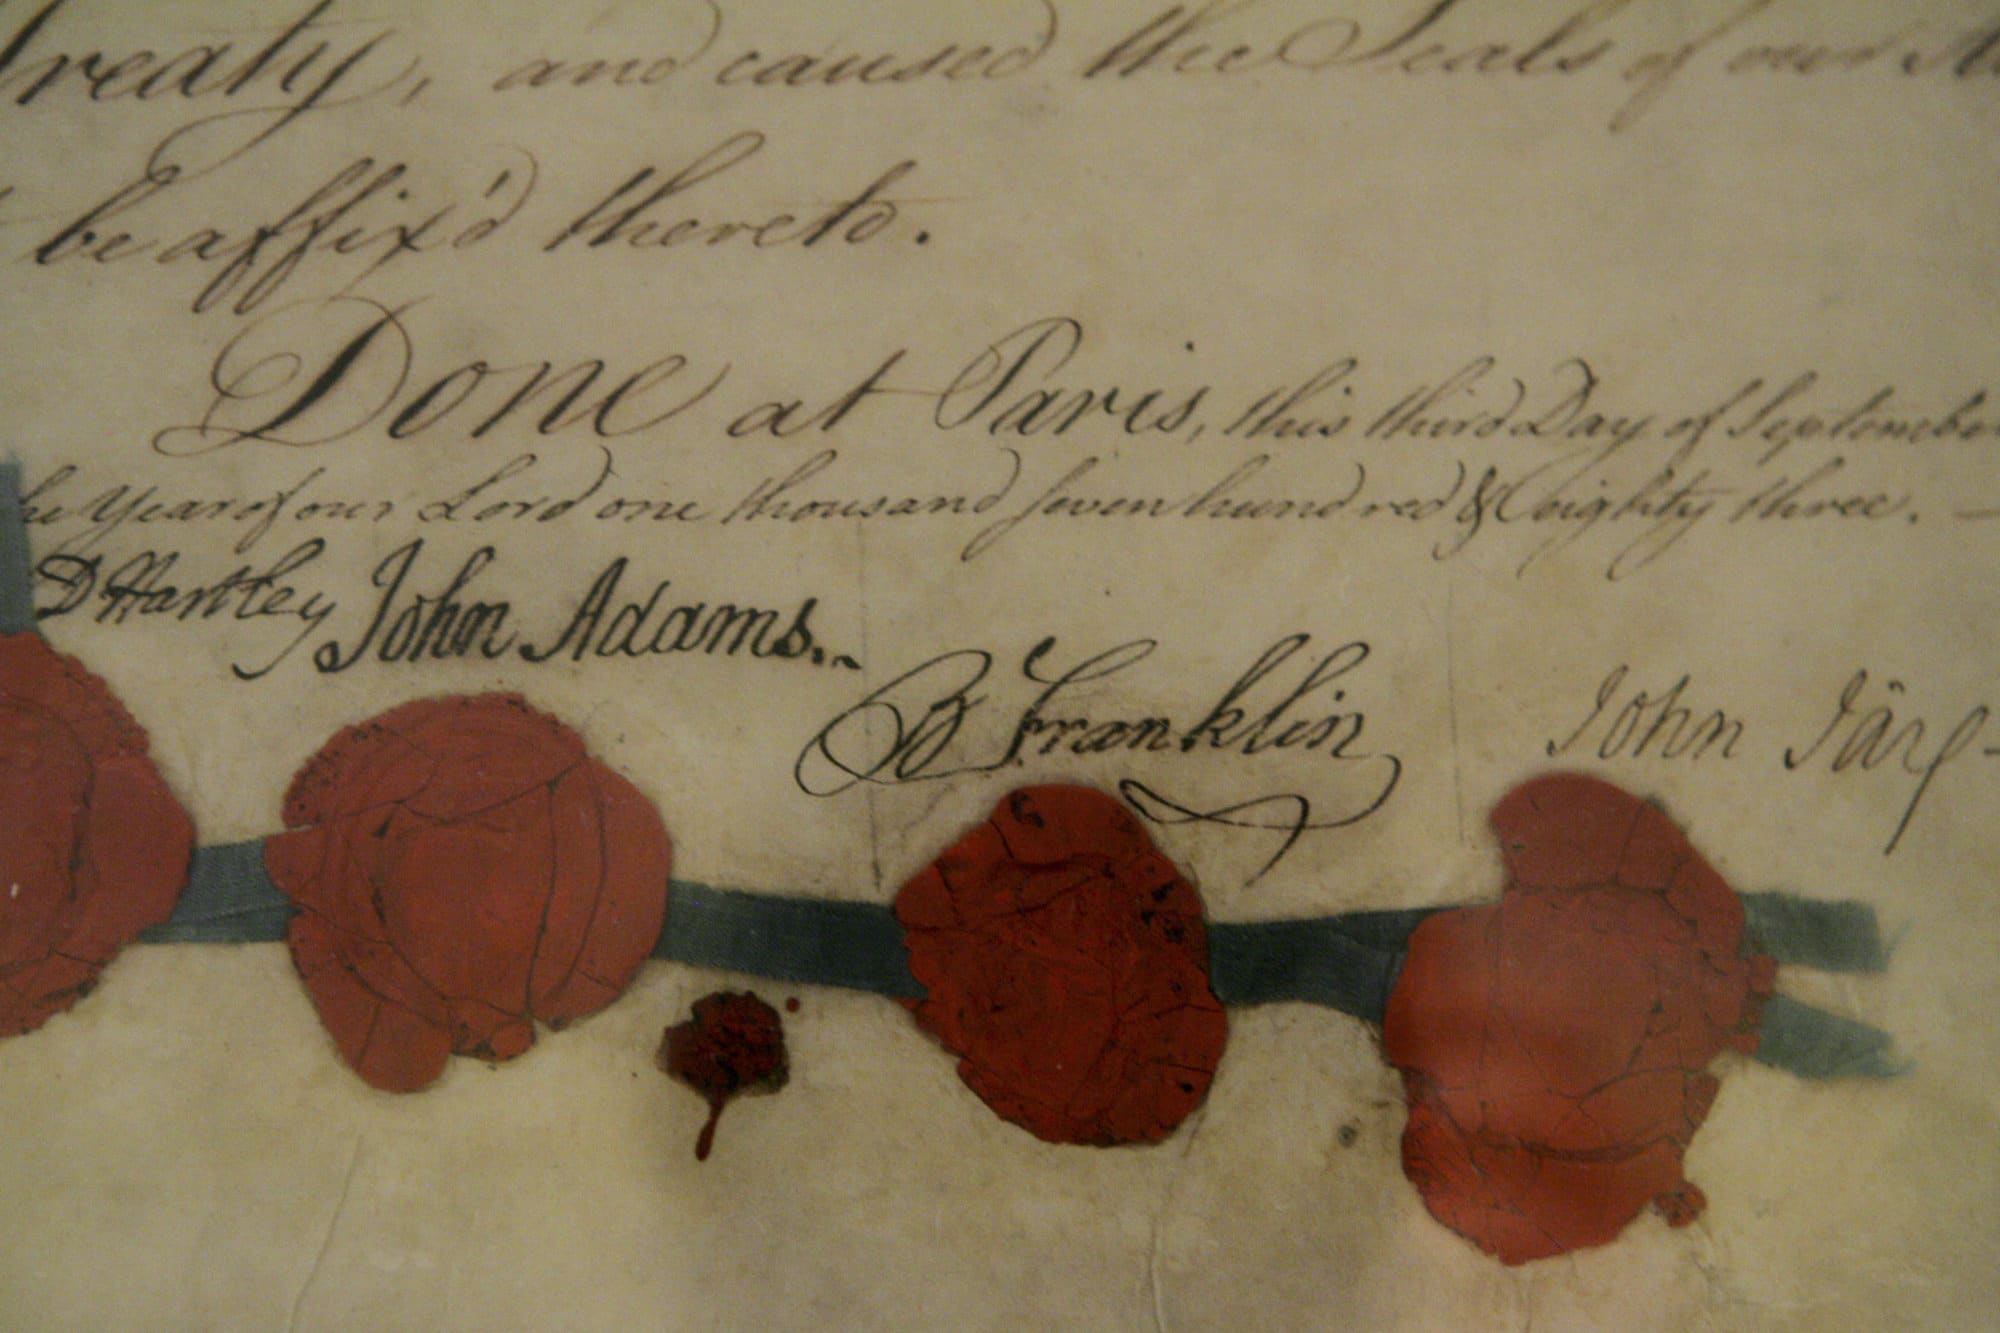 Treaty, and caused the Seals of our
be affix'd thereto.
Done at Paris, this third Day of September
Year of our Lord one thousand seven hundred & eighty three. —
D Hartley John Adams.
B Franklin
John Jay -